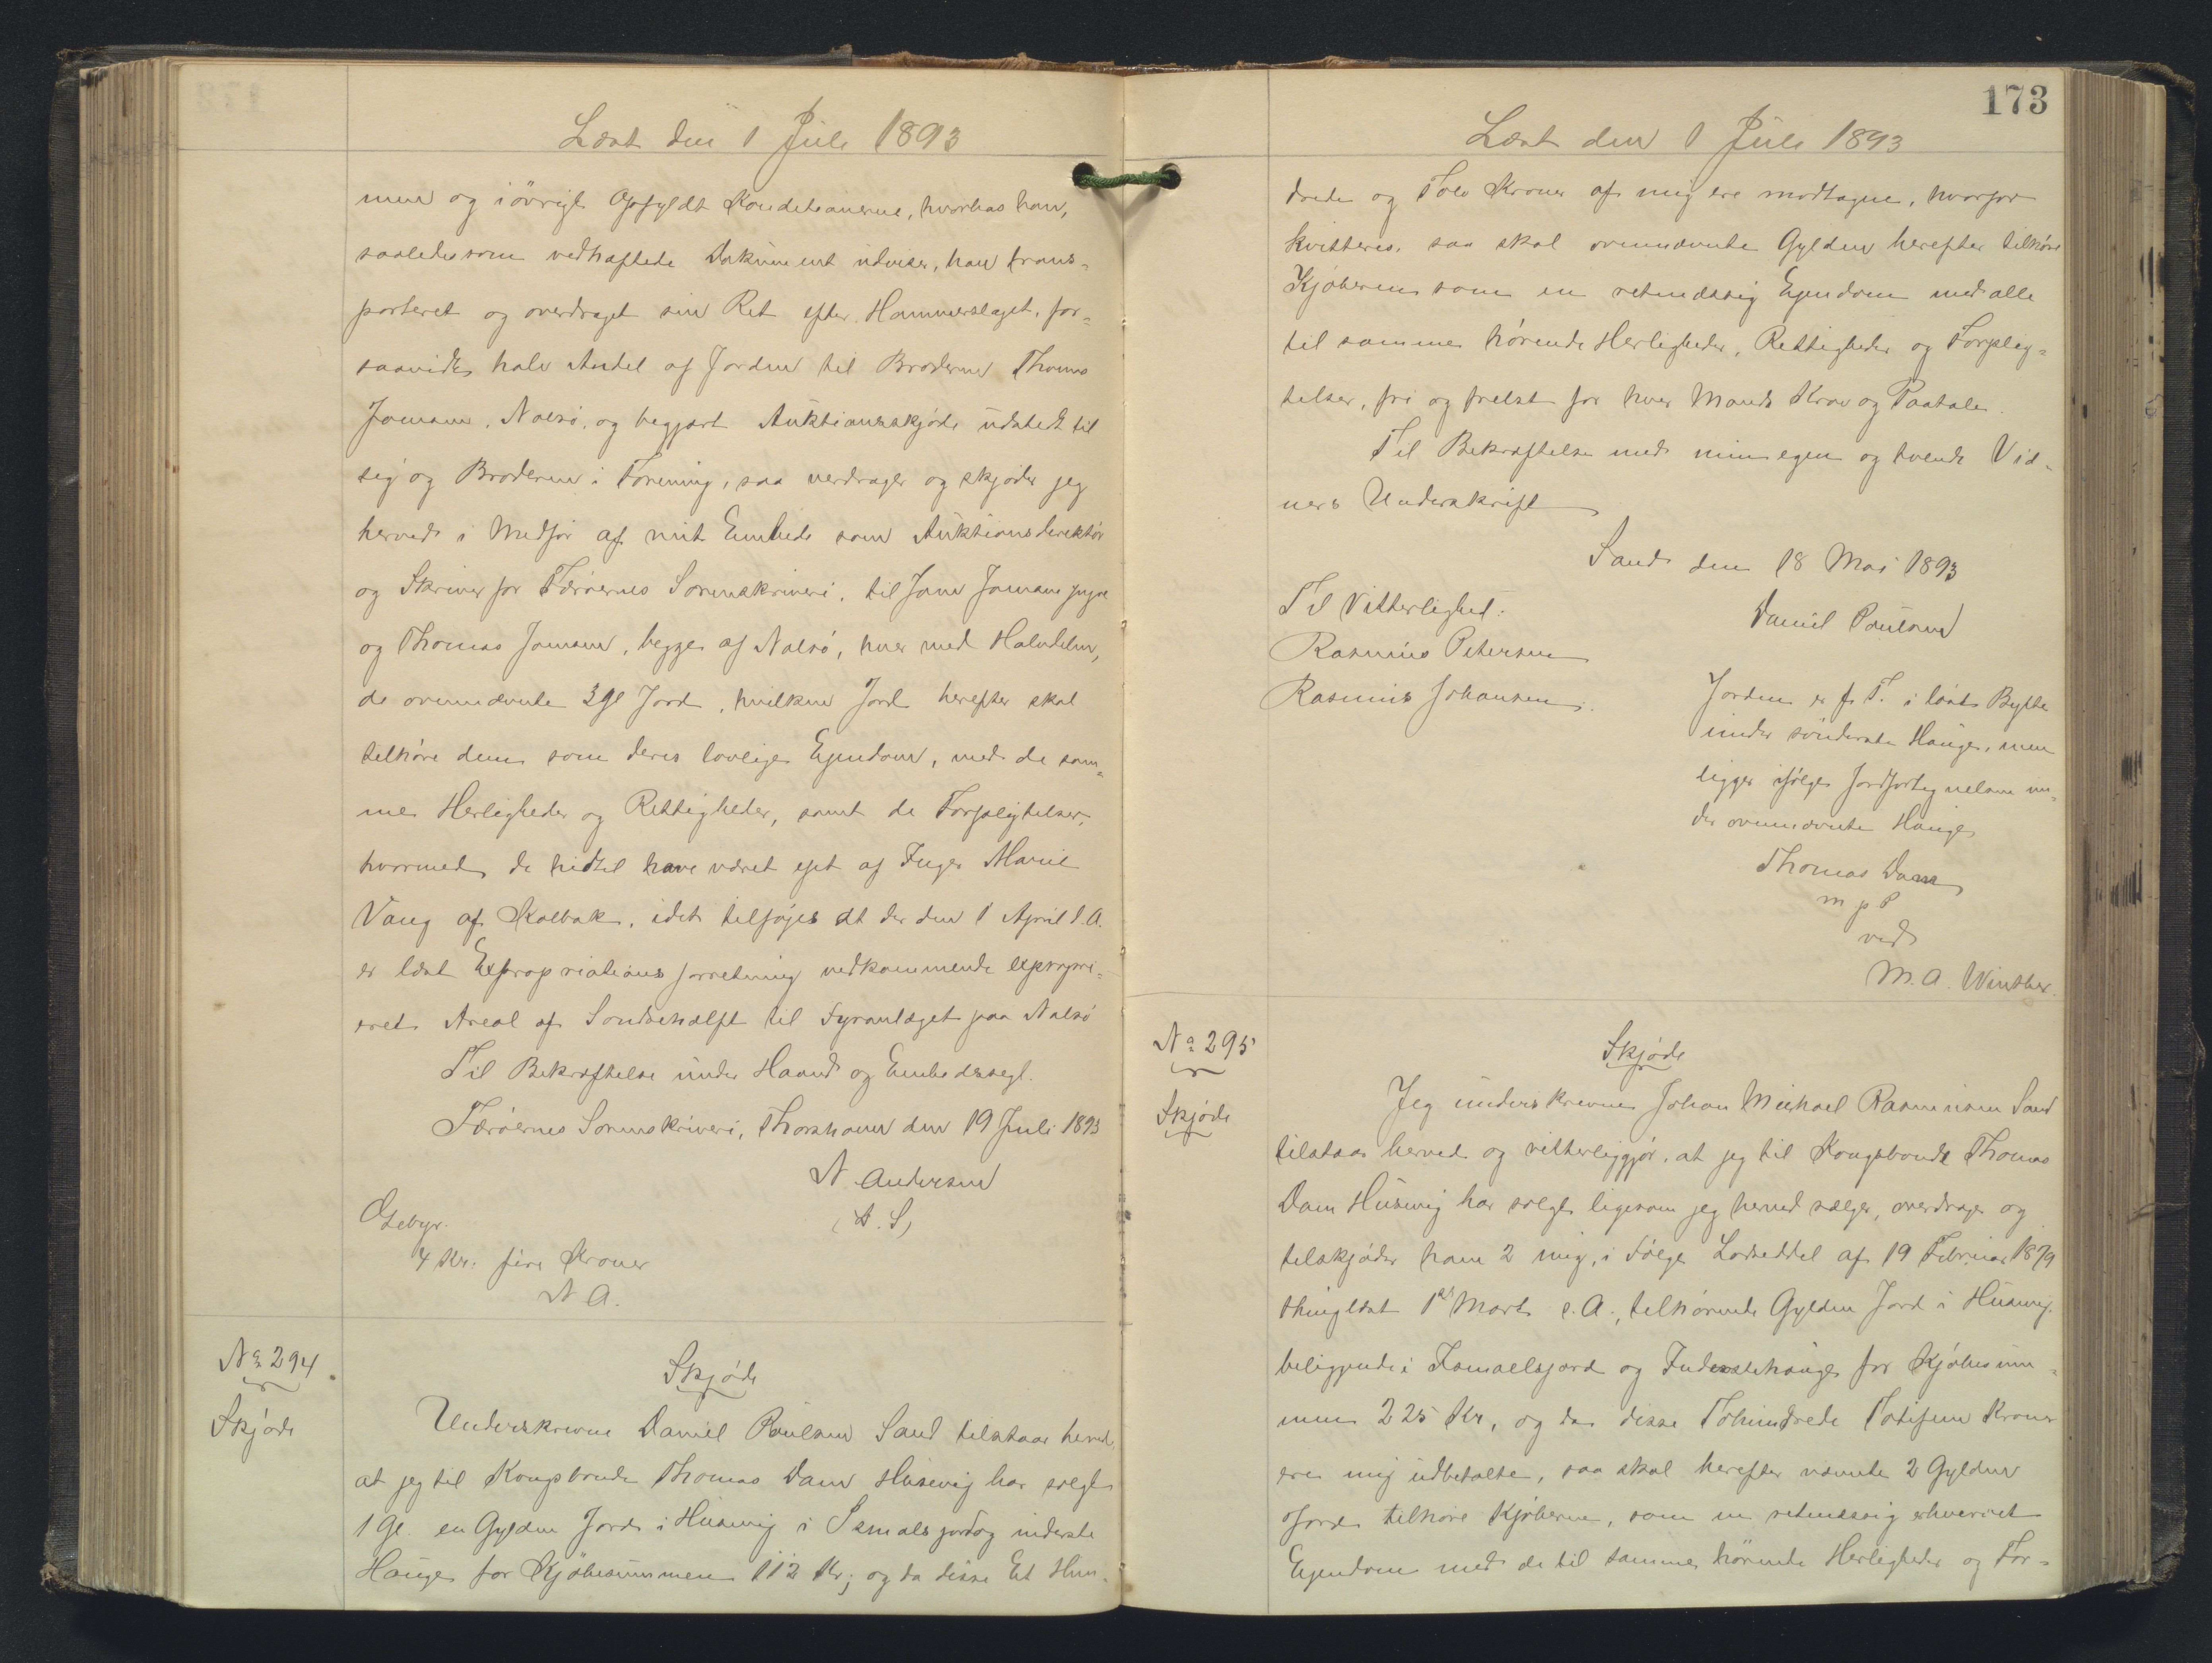 Læst den 1 Juli 1893
men og iövrigt opfyldt Konditionerne, hvorhos han,
saaledes som vedhæftede Dokument udviser, har trans-
porteret og overdraget sin Ret efter Hammerslaget, for-
saavidt halv Andel af Jorden til Broderen Thomas
Joensen, Nolsö, og begjært Auktionsskjöde udstedt til
sig og Broderen i Forening, saa overdrager og skjöder jeg
herved i Medfør af mit Embede som Auktionsdirektör
og Skriver for Færöernes Sorenskriveri, til Joen Joensen
og Thomas Joensen, begge af Nolsö, hver med Halvdelen,
de ovennævnte 3 gl Jord, hvilken Jord herefter skal
tilhöre dem som deres lovlige Ejendom, med de sam-
me Herligheder og Rettigheder, samt de Forpligtelser,
hvormed de hidtil have været ejet af Inger Marie
Vang af Kolbak, idet tilföjes at der den 1 April d. A.
er læst Expropriationsforretning vedkommende expropri-
eret Areal af til Fyranlæget paa Nolsö
Til Bekræftelse under Haand og Embedssegl.
Færöernes Sorenskriveri, Thorshavn den 19 Juli 1893
N Andersen
(L. S)
Gebyr.
4 Kr. fire Kroner
N A.
No 294
Skjöde
Skjöde
Underskrevne Daniel Poulsen Sand tilstaar herved,
at jeg til Kongsbonde Thomas Dam Húsevig har solgt
1 Gl. en Gylden Jord i Húsevig i og inderste
Hauge for Kjöbesummen 112 Kr; og da disse Et Hun-
173
Læst den 1 Juli 1893
drede og Tolv Kroner af mig ere modtagne, hvorfor
kvitteres, saa skal ovennævnte Gylden herefter tilhöre
Kjöberen som en retmæssig Ejendom med alle
til samme hörende Herligheder, Rettigheder og Forplig-
telser, fri og frelst for hver Mands Krav og Paatale.
Til Bekræftelse med min egen og tvende Vid-
ners Underskrift
Sand den 18 Mai 1893
Til Vitterlighed:
Daniel Poulsen
Rasmus Petersen
Rasmus Johansen.
Jorden er p. T. i Bytte
under sönderste Hauge, men
ligger ifölge Jordfortegnelsen un-
der ovennævnte Hauge
Thomas Dam
m p P
ved
M. A. Winther.
No 295
Skjöde
Skjöde
Jeg underskrevne Johan Michael Rasmussen Sand
tilstaar herved og vitterliggjör, at jeg til Kongsbonde Thomas
Dam Húsevig har solgt ligesom jeg herved sælger, overdrager og
tilskjöder ham 2 mig, i Fölge Lodseddel af 19 Februar 1879
thinglæst 1st Marts s. A., tilhörende Gylden Jord i Húsevig
beliggende i og Inderstehauge for Kjöbesum-
men 225 Kr, og da disse Tohundrede Totifem Kroner
ere mig udbetalte, saa skal herefter nævnte 2 Gylden
Jord tilhöre Kjöberen, som en retmæssig erhvervet
Ejendom med de til samme hörende Herligheder og For-